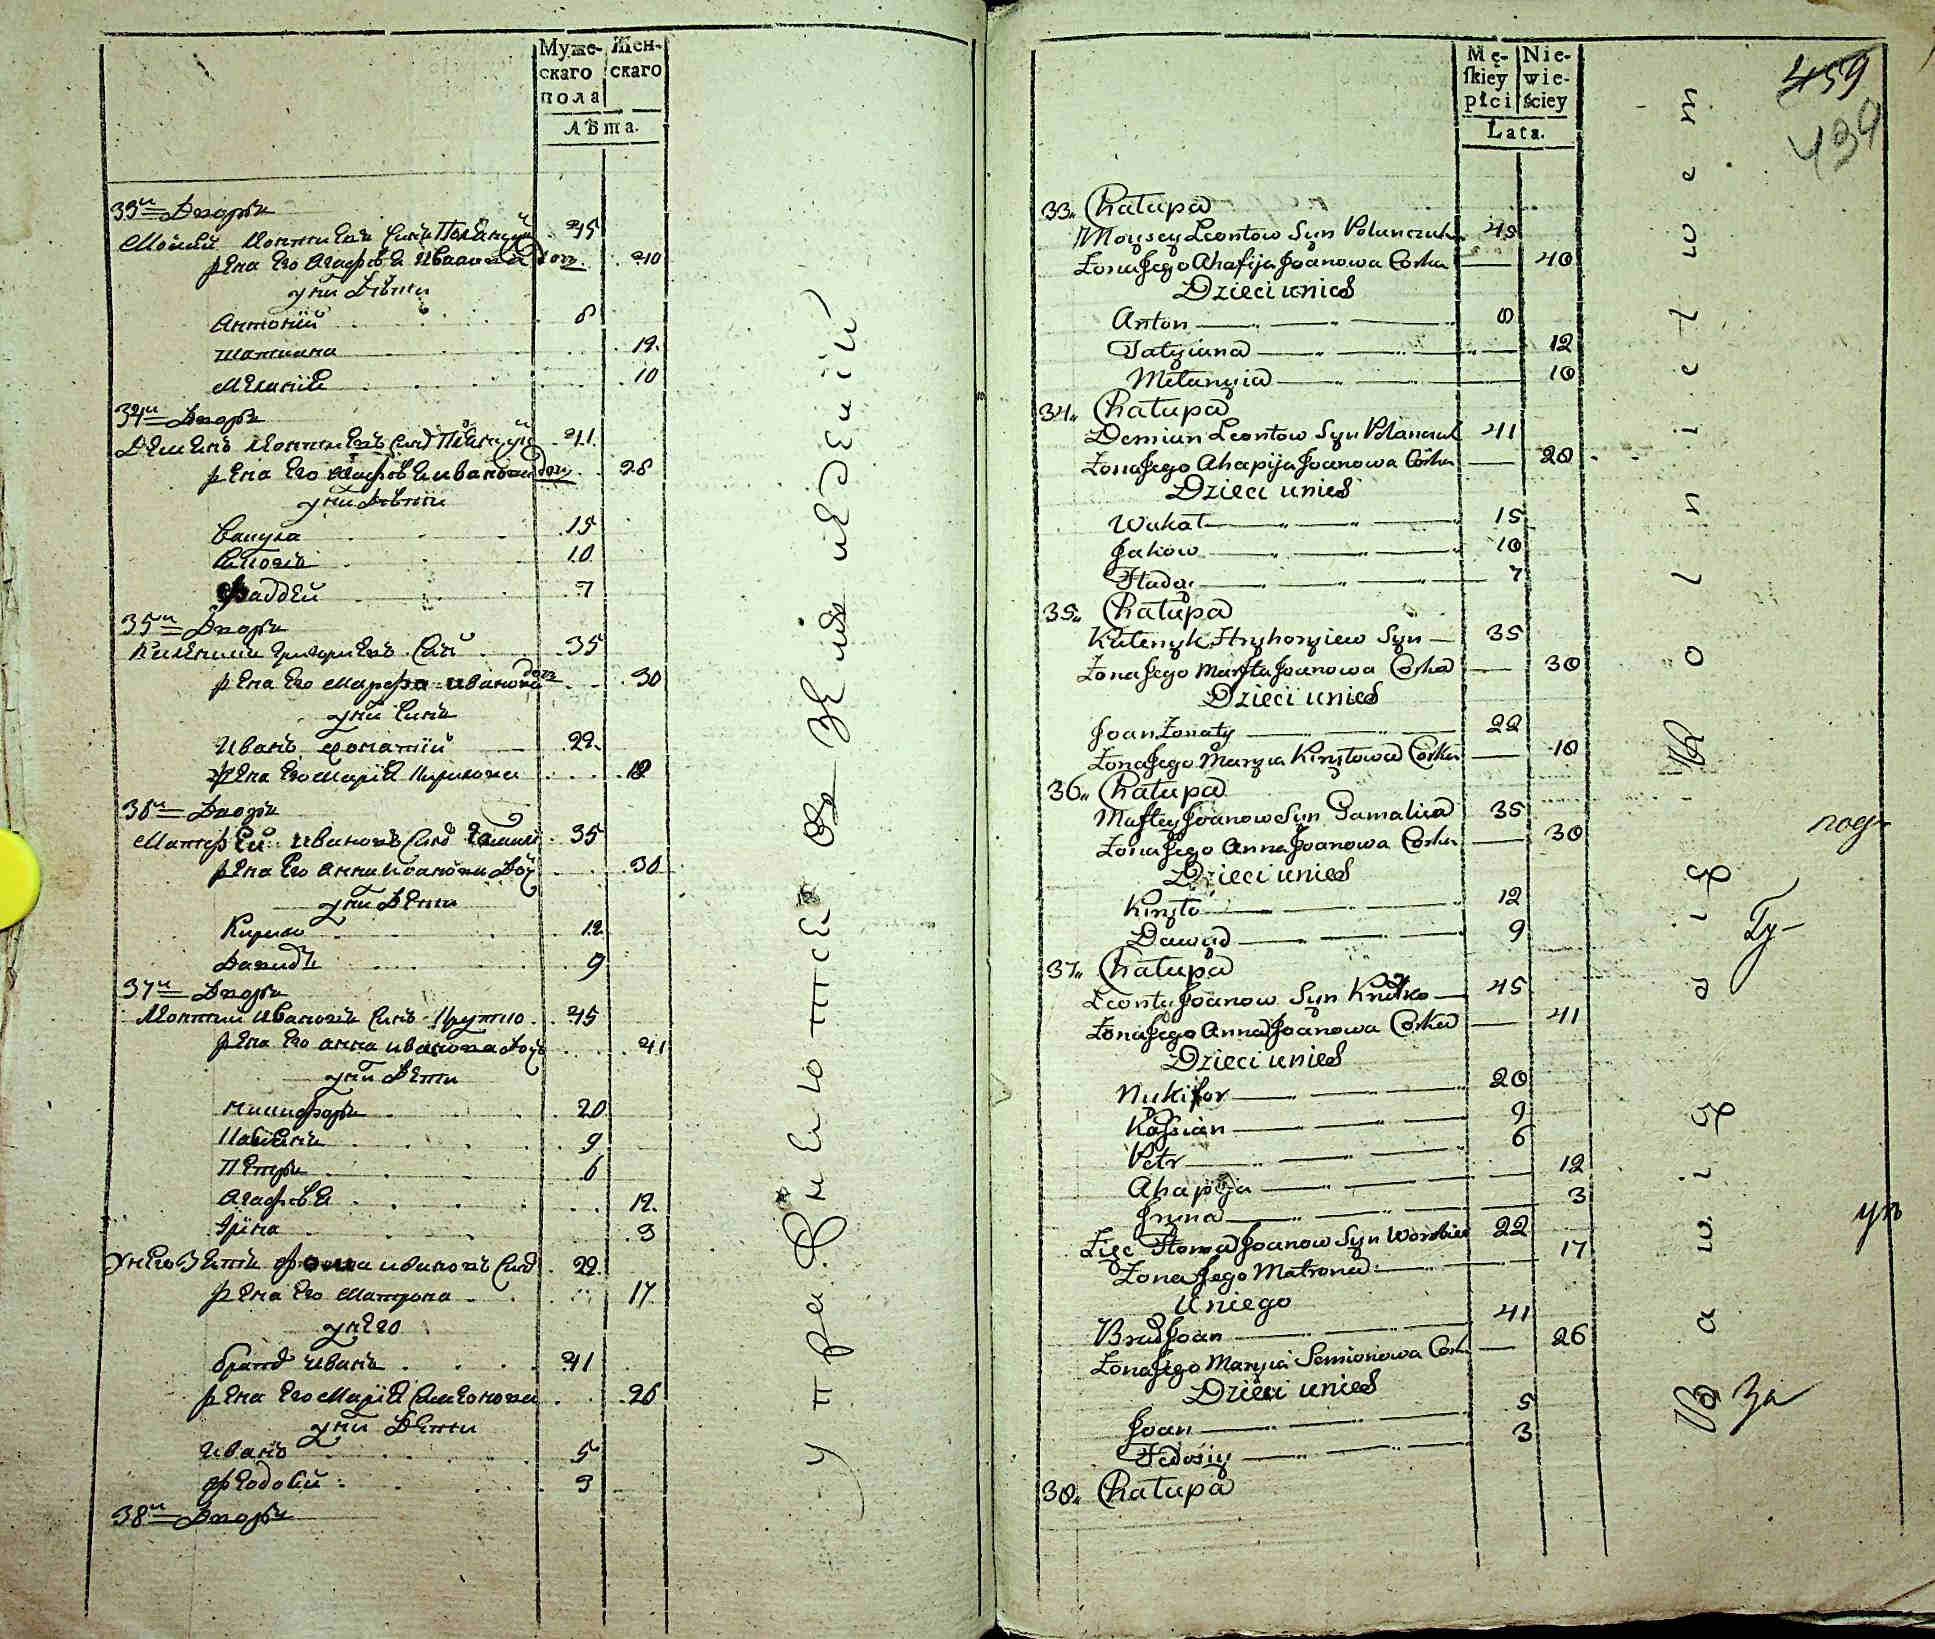 Муже-
скаго
пола
Жен-
скаго
Лѣта.
33й Дворъ
Моисей Леонтиевъ Синъ Поланчук 45
жена его Агафия Иванова доч 40
у них дѣти
Антоний 8
Татиана 12
Мелания 10
34й Дворъ
Демиянъ Леонтиевъ синъ Поланчук 41
жена его Агафия Иванова доч 28
у них дѣти
Вакула 15
Яковъ 10
Фаддей 7
35й Дворъ
Калиник Григориевъ Син 35
жена его Марфа Иванова доч 30
у них Синъ
Иванъ жонатий 22
жена его Мария Кирилова 18
36й Дворъ
Матфей Ивановъ Синъ 35
жена его Анна Иванова доч 30
у них дети
Кирило 12
Давидъ 9
37й Дворъ
Леонтий Ивановъ Синъ Крутко 45
жена его Анна Иванова доч 41
у них дети
Никифоръ 20
Касиянъ 9
Петръ 6
Агафия 12
Ирина 3
у него Зеть Фома Ивановъ Синъ 22
жена его Матрона 17
у него
братъ Иванъ 41
жена его Мария Симеонова 26
у них дети
Иванъ 5
Феодосий 3
38й Дворъ
Mę-
ſkiey
płci
Nie-
wie-
ściey
Lata.
459
439
33. Chałupa
Moysey Leontow Syn Polanczuk 45
Żona Jego Ahafija Joanowa Corka 40
Dzieci unich
Anton 8
Tatyiana 12
Mełanyia 10
34. Chałupa
Demian Leontow Syn Polanczuk 41
Żona Jego Ahapija Joanowa Corka 28
Dzieci unich
Wakał 15
Jakow 10
Fładey 7
35. Chałupa
Kałenyk Hryhoryiew Syn 35
Żona Jego Marfta Joanowa Corka 30
Dzieci unich
Joan Żonaty 22
Żona Jego Maryia Kiryłowa Corka 18
36. Chałupa
Maftey Joanow Syn Gamalica 35
Żona Jego Anna Joanowa Corka 30
Dzieci unich
Kiryło 12
Dawyd 9
37. Chałupa
Leonty Joanow Syn Krutko 45
Żona Jego Anna Joanowa Corka 41
Dzieci unich
Nikifor 20
Kassian 9
Petr 6
Ahapija 12
Iryna 3
Zięc Homa Joanow Syn 22
Żona Jego Matrona 17
u niego
Brat Joan 41
Żona Jego Maryia Semionowa Cork 26
Dzieci unich
Joan 5
Fedosiy 3
38. Chałupa